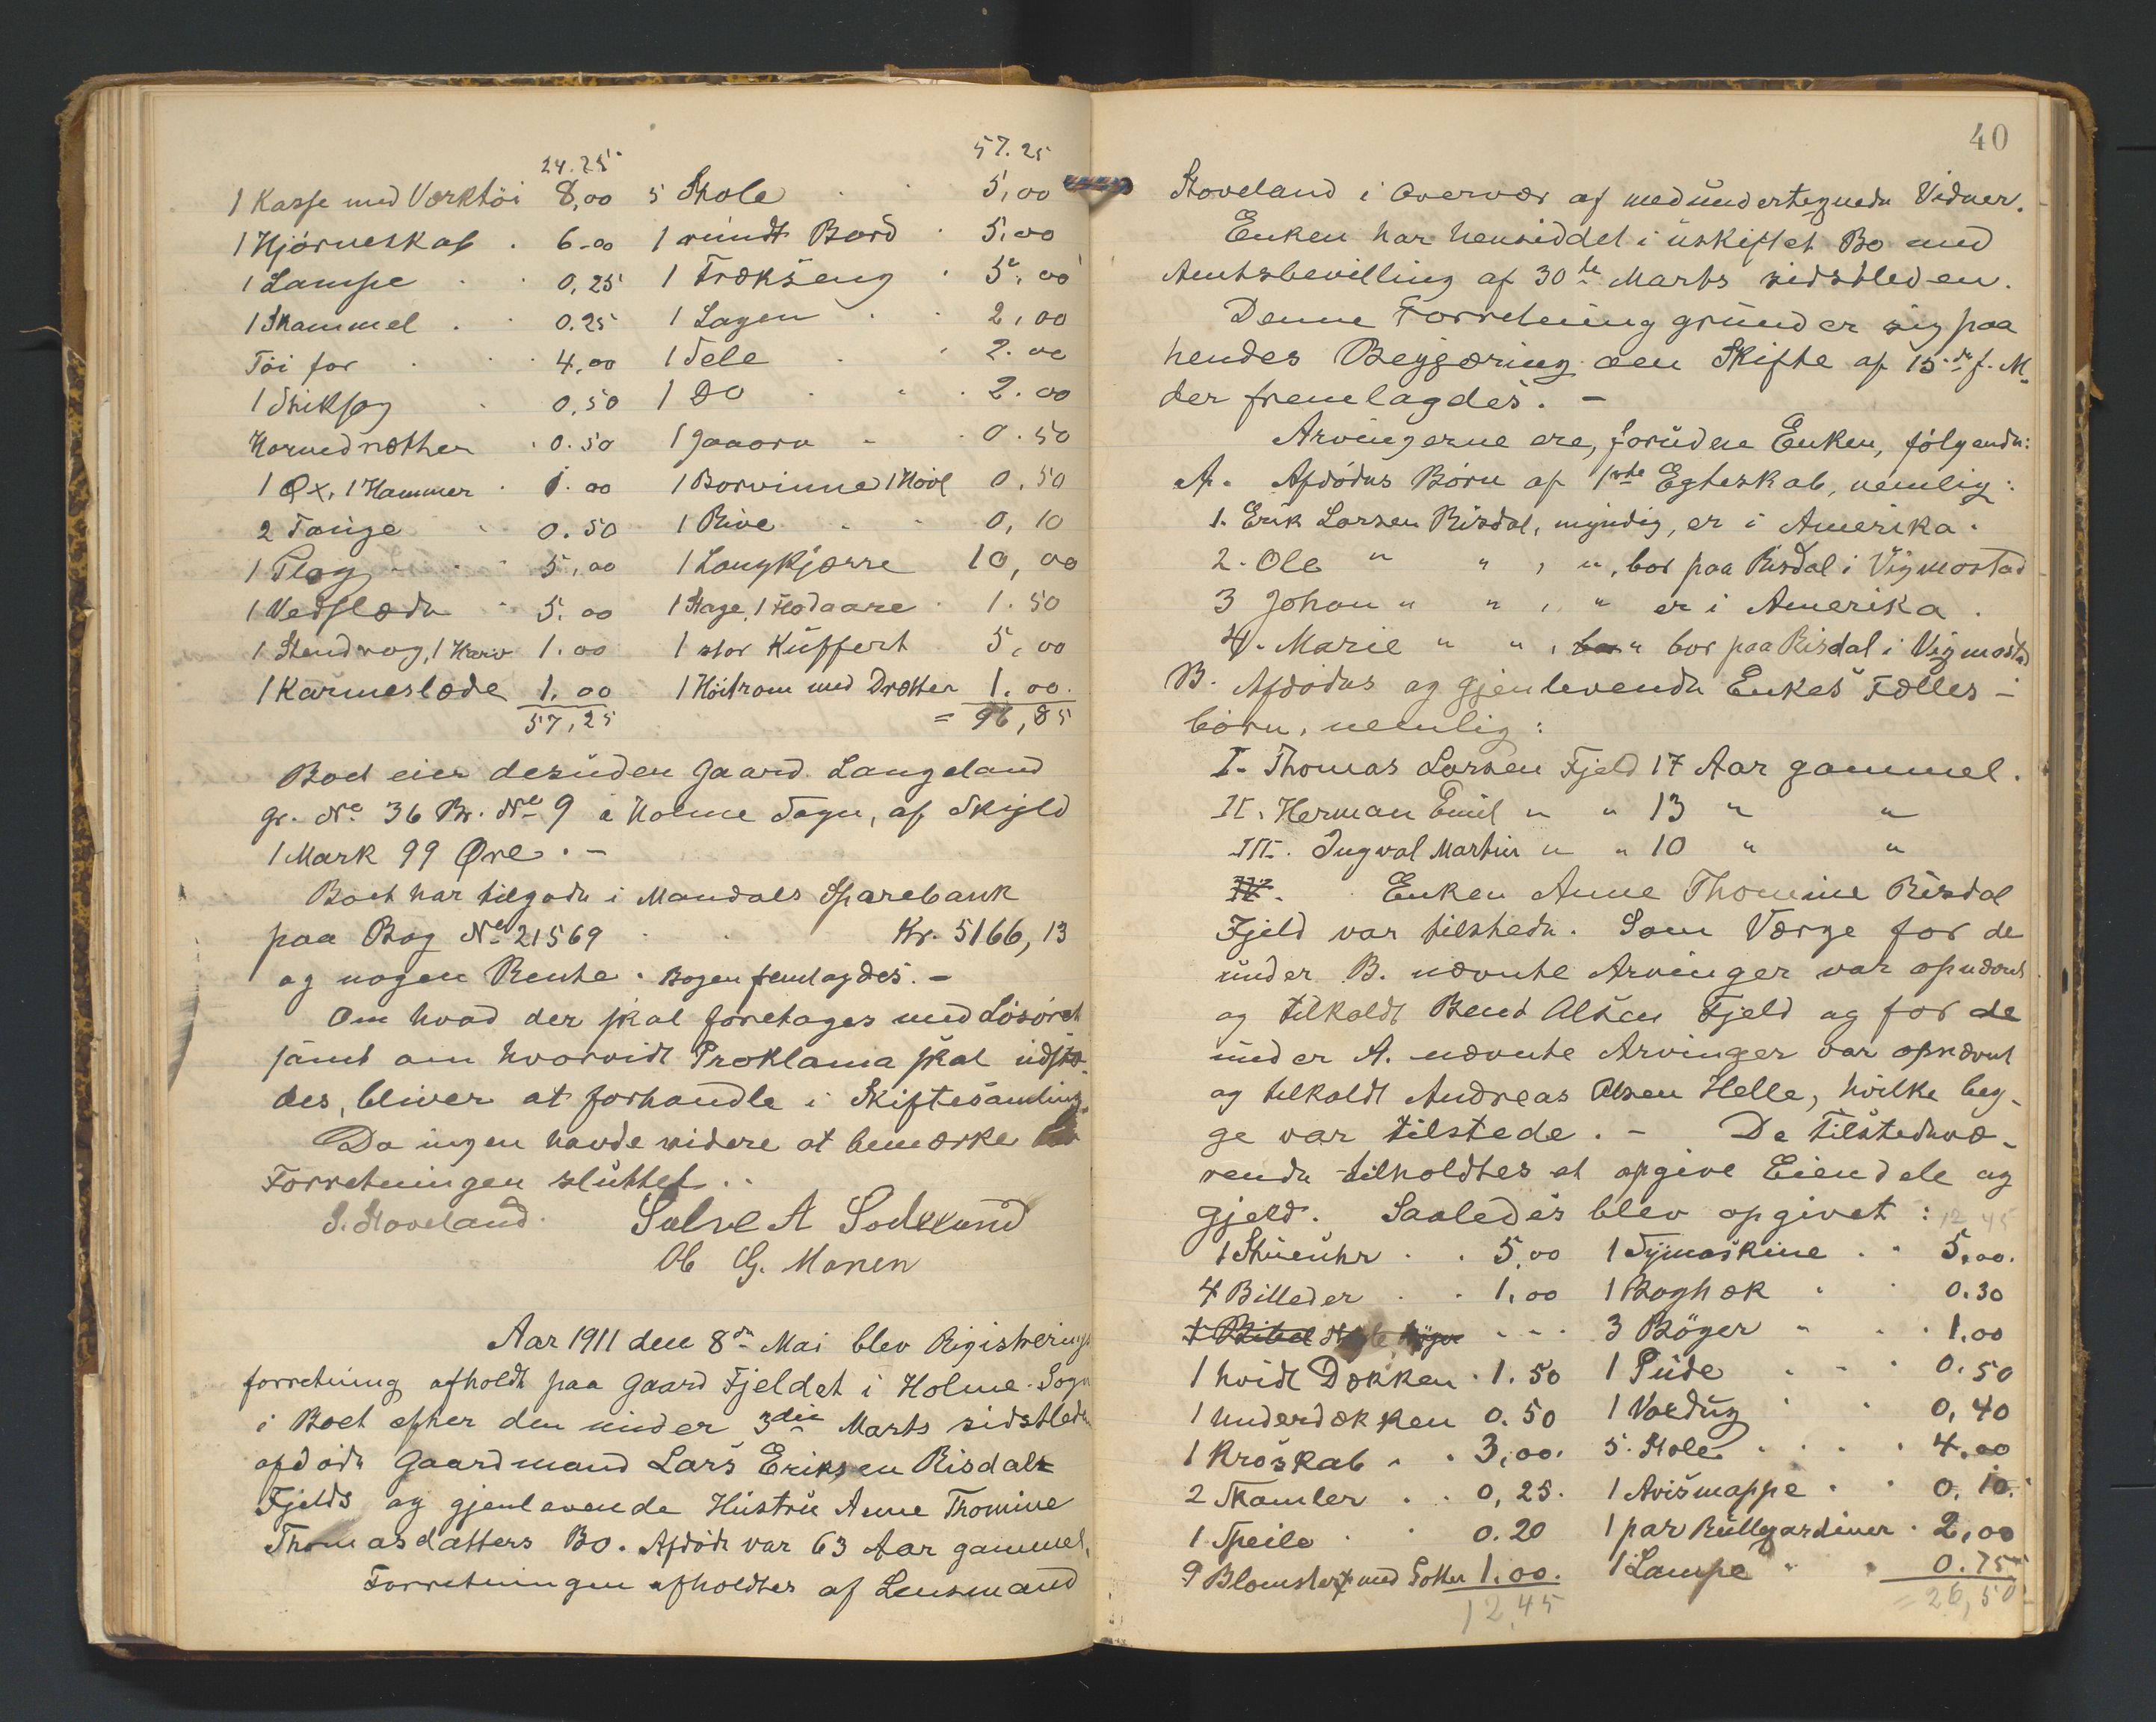 24.25
1 Kasse med Værktøi 8,00
1 Hjørneskab . 6.00
1 Lampe . . 0,25
1 Skammel . . 0.25
Tøi for . . . 4,00
1 Stiksag . 0,50
. 0.50
1 Øx, 1 Hammer . 1.00
2 Tønge . 0.50
1 Plog . . . 5,00
1 Vedslæde . 5.00
1 Stendrog, 1 Harv 1.00
1 Karmeslæde 1.00
57,25
57.25
5 Stole . . 5,00
1 rundt Bord . 5.00
1 Trækseng . 5.00
1 Lagen . . 2,00
1 Sele . . 2.00
1 Do . . . 2.00
1 . 0.50
1 Borvinne 1 Høvl 0,50
1 Rive . . 0,10
1 Langkjærre 10,00
1 Hage, 1 . 1.50
1 stor Kuffert 5,00
1 med Drætter 1.00.
= 96,85
Boet eier desuden Gaard. Langeland
gr. No 36 Br. No 9 i Holme Sogn, af Skyld
1 Mark 99 Øre. -
Boet har tilgode i Mandals Sparebank
paa Bog No 21569 . . Kr. 5166,13
og nogen Rente. Bogen fremlagdes. -
Om hvad der skal foretages med Løsøret
samt om hvorvidt Proklama skal udstæ-
des, bliver at forhandle i Skiftesamling.
Da ingen havde videre at bemærke blev
Forretningen sluttet. .
S. Stoveland. Salve A
Ole G. Monen
Aar 1911 den 8de Mai blev Rigistrerings
forretning afholdt paa Gaard Fjeldet i Holme Sogn
i Boet efter den under 3die Marts sidstledne
afdøde Gaardmand Lars Eriksen Risdals
Fjelds og gjenlevende Hustru Anne Tromine
Thomasdatters Bo. Afdøde var 63 Aar gammel.
Forretningen afholdtes af Lensmand
40
Stoveland i Overvær af medundertegnede Vidner.
Enken har hensiddet i uskiftet Bo med
Amtsbevilling af 30te Marts sidstleden.
Denne Forretning grunder sig paa
hendes Begjæring om Skifte af 15de f. M.
der fremlagdes. -
Arvingerne ere, foruden Enken, følgende:
A. Afdødes Børn af 1ste Egteskab, nemlig:
1. Erik Larsen Risdal, myndig, er i Amerika.
2. Ole " " , ", bor paa Risdal i Vigmostad
3 Johan " " , " er i Amerika.
4. Marie " " , bor " bor paa Risdal i Vigmostad
B. Afdødes og gjenlevende Enkes Fælles-
børn, nemlig:
I. Thomas Larsen Fjeld 17 Aar gammel.
II. Herman Emil " " 13 " "
III. Ingval Martin " " 10 " "
IV. Enken Anne Thomine Risdal
Fjeld var tilstede. Som Værge for de
under B. nævnte Arvinger var opnævnt
og tilkaldt Bent Olsen Fjeld og for de
under A. nævnte Arvinger var opnævnt
og tilkaldt Andreas Olsen Helle, hvilke beg-
ge var tilstede. - De Tilstedevæ-
rende tilholdtes at opgive Eiendele og
Gjeld. Saaledes blev opgivet :
12,45
1 Stueuhr . . 5,00
4 Billeder . . 1,00
1 Bibel
1 hvidt Dækken . 1.50
1 Underdækken 0.50
1 Kroskab . . 3,00.
2 Skamler . . 0,25.
1 Speile . . 0.20
9 Blomster med Potter 1.00.
12,45
1 Symaskine . . 5,00.
1 Boghæk . . 0.30
3 Bøger . . . 1,00
1 Pude . . . 0.50
1 Voxdug . . 0,40
5. Stole . . . . 4,00
1 Avismappe . . 0,10.
1 par Rullgardiner . 2,00
1 Lampe . . 0.75
= 26,50